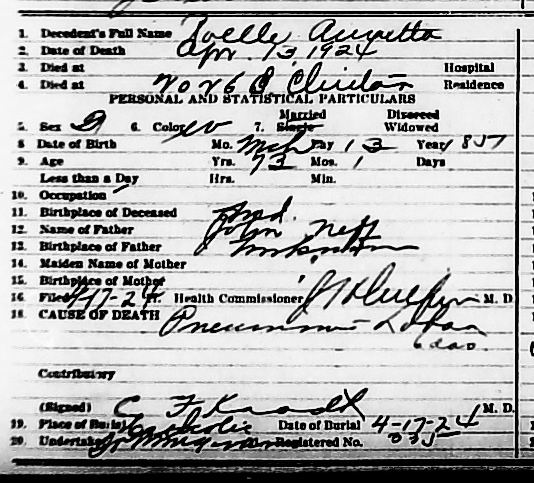 1. Decedent's Full Name
2. Date of Death Apr. 13, 1924
3. Died at Hospital
4. Died at Residence
PERSONAL AND STATISTICAL PARTICULARS
Married Divorced
5. Sex 6. Color W 7. Single Widowed
8 Date of Birth Mo. Mch Day 13 Year 1851
9. Age Yrs. 73 Mos. 1 Days
Less than a Day Hrs. Min.
10. Occupation
11. Birthplace of Deceased Ind.
12. Name of Father John Neff
13. Birthplace of Father Unknown
14. Maiden Name of Mother
15. Birthplace of Mother
16. Filed 4-17-24 Health Commissioner M. D.
18. CAUSE OF DEATH Pneumonia Lobar
6 das.
Contributory
(Signed) C F M. D.
19. Place of Burial Catholic Date of Burial 4-17-24
20. Undertaker Registered No.